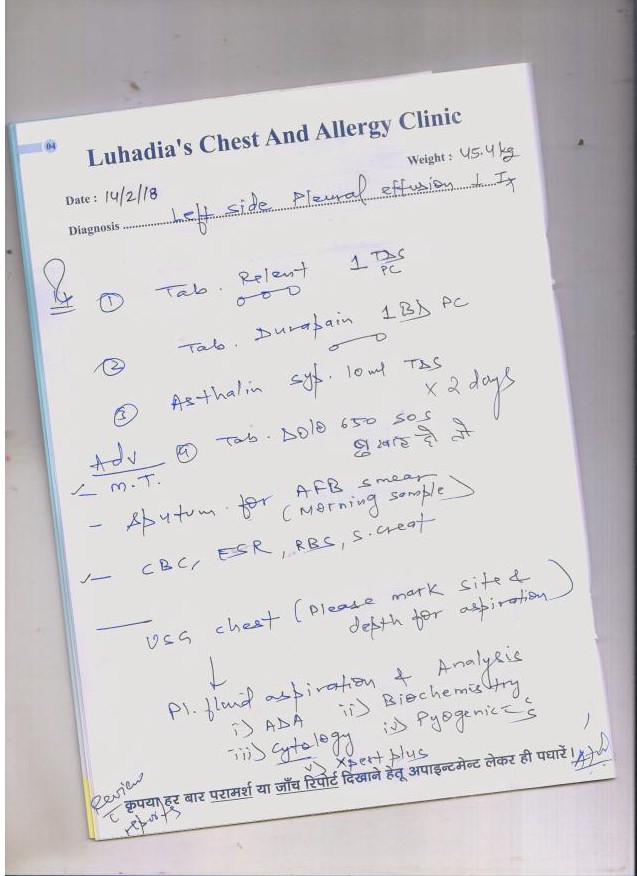 04
Luhadia's Chest And Allergy Clinic
Weight : 45.4 kg
Date : 14/2/18
Diagnosis ........ Left side Pleural effusion
① Tab. Relent 1 TDS
PC
② Tab. Durapain 1 BD PC
③ Asthalin syp. 10 ml TDS
x 2 days
④ Tab. Dolo 650 SOS
बुखार हो तो
Adv
- M.T.
- Sputum for AFB smear
(Morning sample)
- CBC, ESR, RBS, S. creat
USG chest (Please mark site &
depth for aspiration)
↓
Pl. fluid aspiration & Analysis
i) ADA ii) Biochemistry
iii) Cytology iv) Pyogenic C/S
v) Xpert plus
Review
c̄ reports
कृपया हर बार परामर्श या जाँच रिपोर्ट दिखाने हेतू अपाइन्टमेन्ट लेकर ही पधारें।